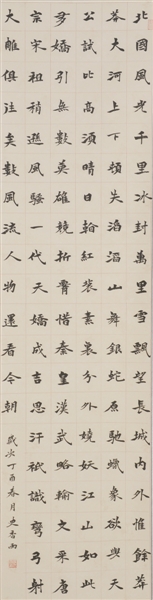 北國風光千里冰封萬里雪飄望長城內外惟餘莽
莽大河上下頓失滔滔山舞銀蛇原馳蠟象欲與天
公試比高須晴日看紅裝素裹分外妖嬈江山如此
多嬌引無數英雄競折腰惜秦皇漢武略輸文采唐
宗宋祖稍遜風騷一代天驕成吉思汗祇識彎弓射
大雕俱往矣數風流人物還看今朝
歲次丁酉春月史